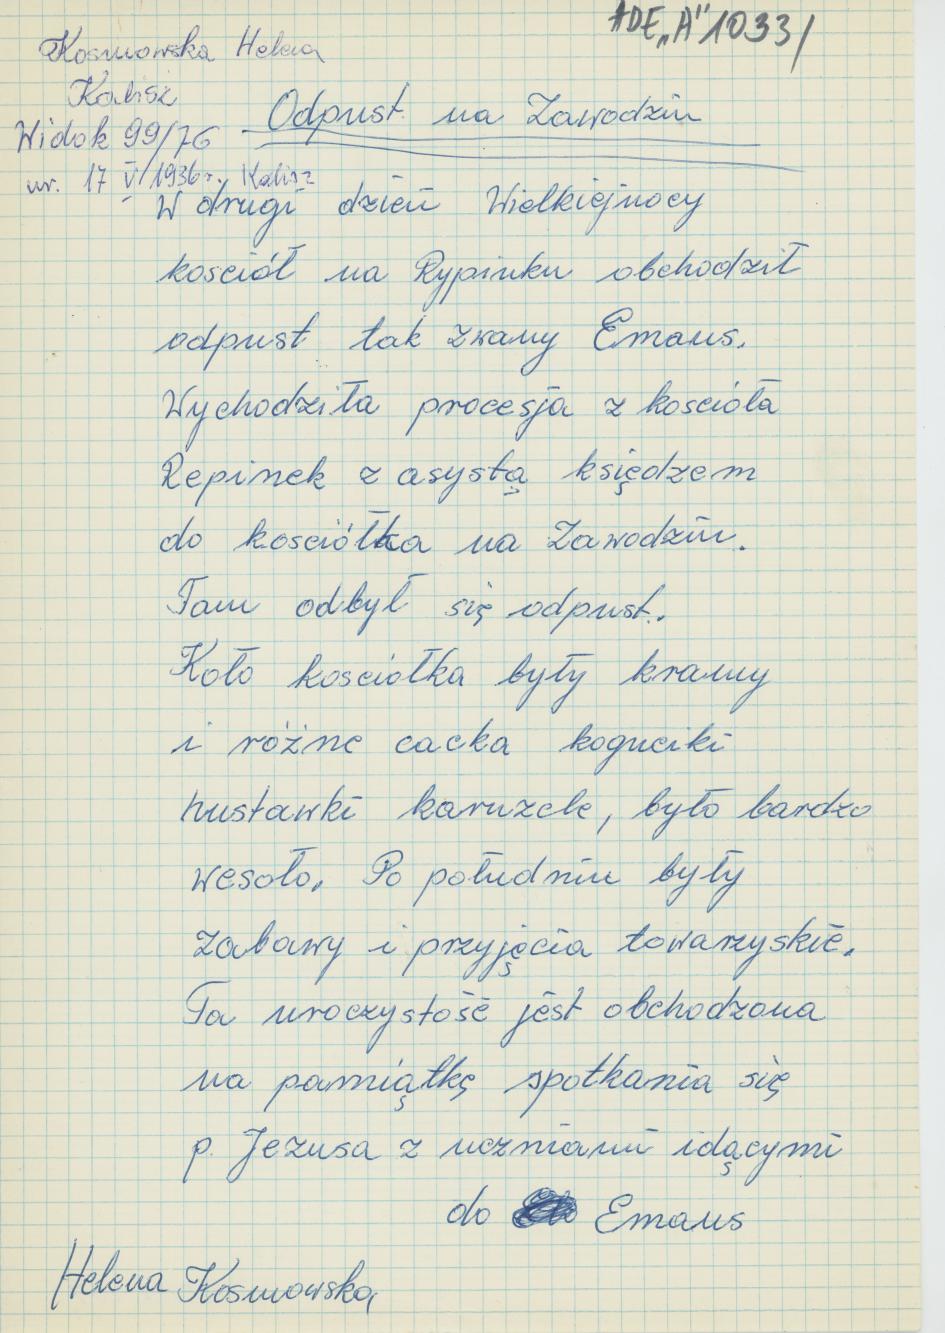 ADE„A" 1033/
Kosmowska Helena
Kalisz
Widok 99/76
ur. 17 V 1936r. Kalisz
Odpust na Zawodziu
W drugi dzień Wielkiejnocy
kosciół na Rypinku obchodził
odpust tak zwany Emaus.
Wychodziła procesja z koscioła
Repinek z asystą księdzem
do kosciółka na Zawodziu.
Tam odbył się odpust.
Koło kosciołka były kramy
i różne cacka koguciki
hustawki karuzele, było bardzo
wesoło. Po południu były
zabawy i przyjęcia towarzyskie.
Ta uroczystość jest obchodzona
na pamiątkę spotkania się
p. Jezusa z uczniami idącymi
do Emaus
Helena Kosmowska